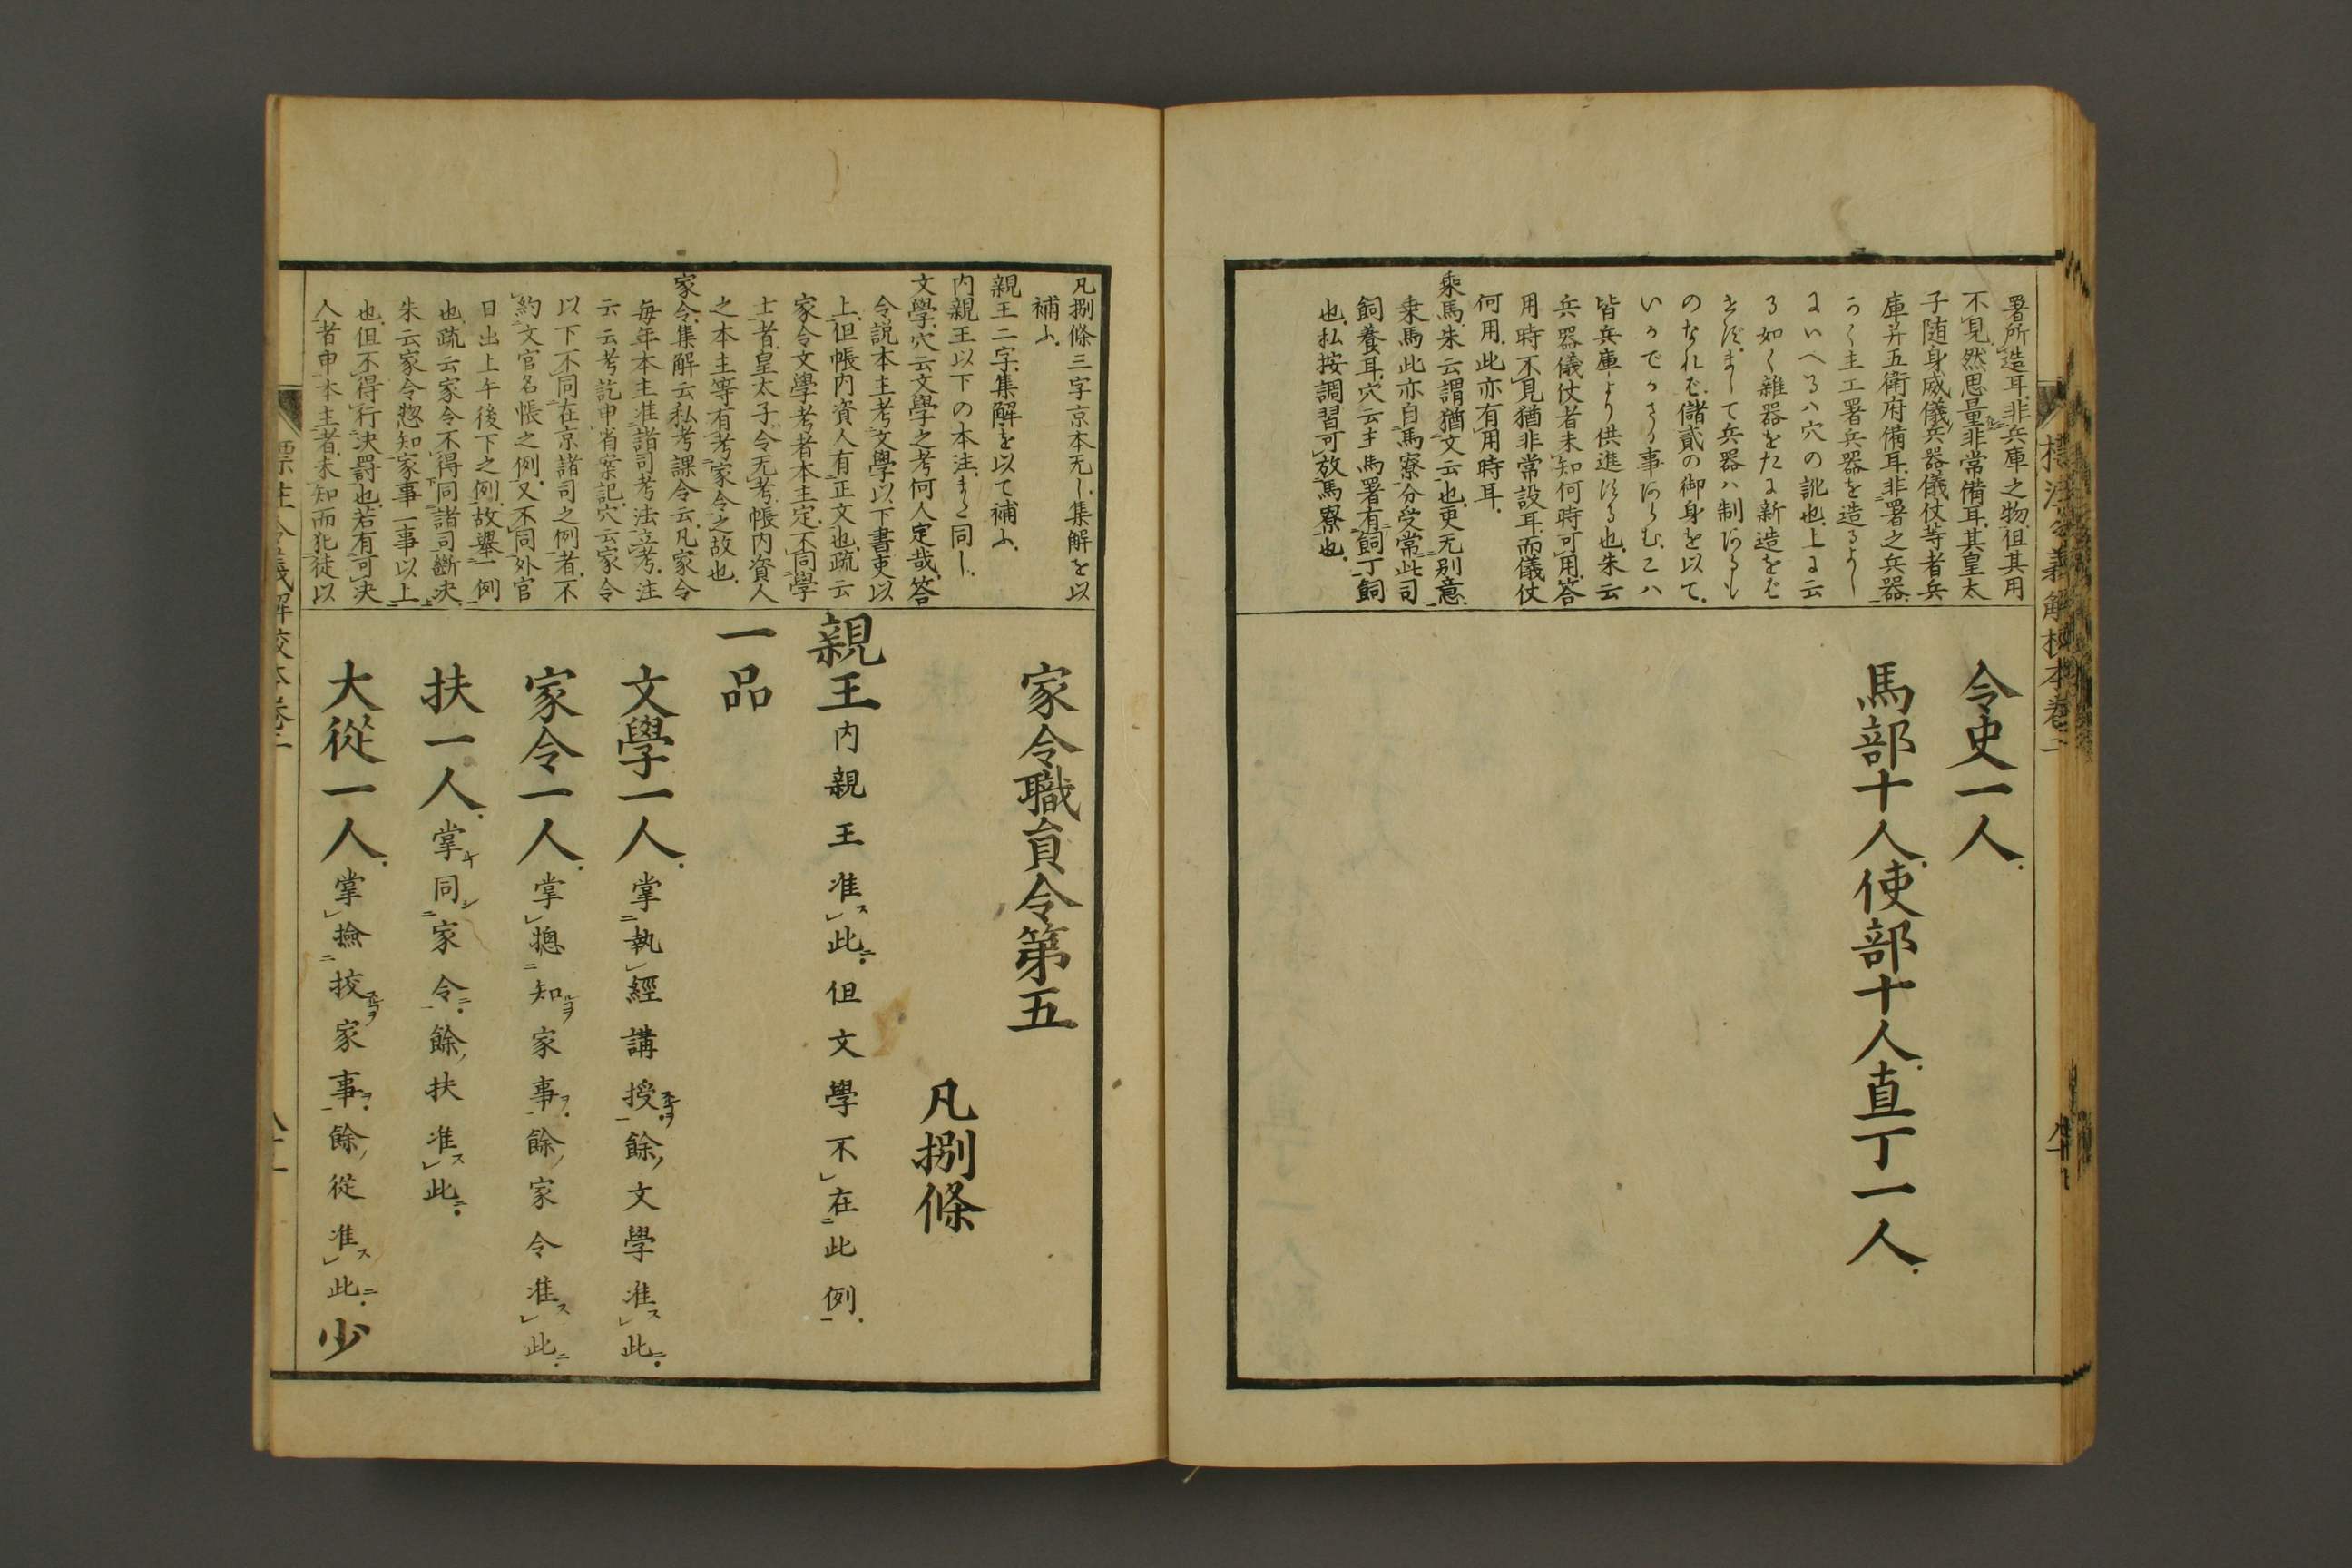 署所造耳、非兵庫之物、但其用
不見、然思量非常備耳、其皇太
子随身威儀、兵器儀仗等者、兵
庫并五衛府備耳、非署之兵器、
かく主工署兵器を造るよし
にいへるハ穴の訛也、上に云
る如く雜器をたに新造をば
まして兵器ハ制
のなれバ、儲貳の御身を以て、
いかでかさる事あらむ、こハ
皆兵庫より供進する也、朱云
兵器儀仗者未知何時可用、答
用時不見、猶非常設耳、而儀仗
何用、此亦有用時耳、
乘馬、朱云謂猶文云也、更无別意、
乗馬此亦自馬寮分受常此司
飼養耳、穴云主馬署有飼丁飼
也、私按調習可放馬寮也、
令史一人、
馬部十人、使部十人、直丁一人、
凡捌條三字京本无し、集解を以
補ふ、
親王二字、集解を以て補ふ、
内親王以下の本注、また同し、
文學、穴云文學之考何人定哉、答
令説本主考文學以下書吏以
上、但帳内資人有正文也、疏云
家令文學考者本主定、不同學
士者、皇太子令无考、帳内資人
之本主等有考家令之故也、
家令、集解云私考課令云、凡家令
毎年本主准諸司考法立考、注
云云考訖申省案記、穴云家令
以下不同在京諸司之例者、不
約文官名帳之例、又不同外官
日出上午後下之例、故擧一例
也、疏云家令不得同諸司斷決、
朱云家令惣知家事一事以上
也、但不得行決罸也、若有可決
人者申本主者、未知而犯徒以
家令職員令第五
凡捌條
親王内親王准此、但文學不在此例、
一品
文學一人、掌執經講授、餘文學准此、
家令一人、掌摠知家事、餘家令准此、
扶一人、掌同家令、餘扶准此、
大從一人、掌撿挍家事、餘從准此、少
標注令義解校本卷二